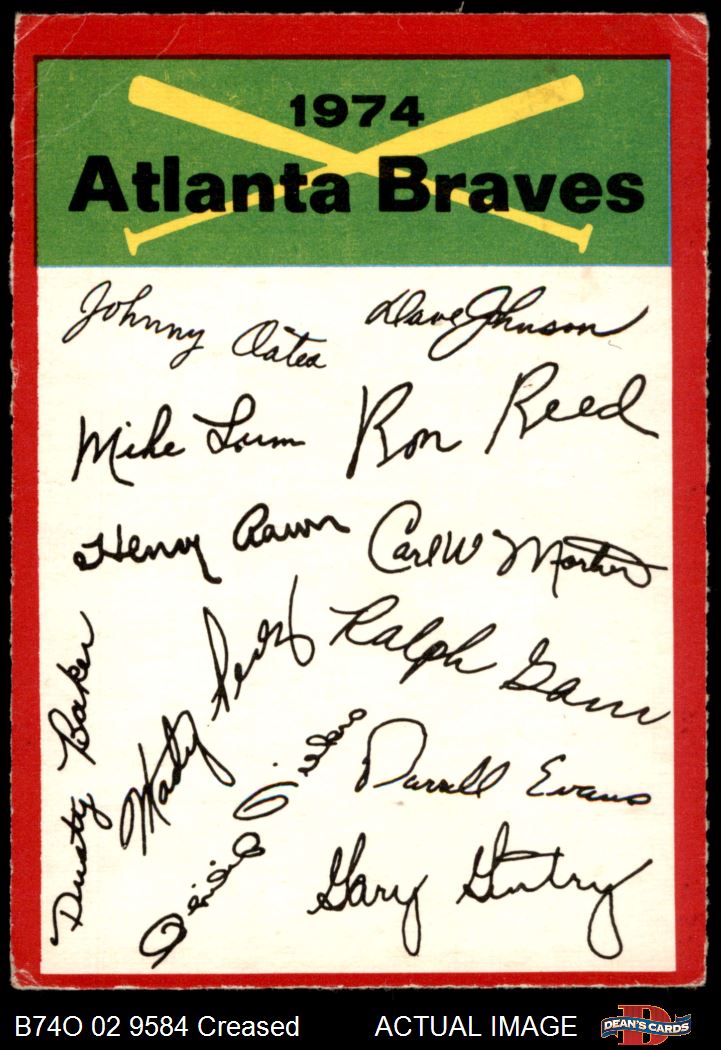 1974
Atlanta Braves
Johnny Oates
Dave Johnson
Mike Lum
Ron Reed
Henry Aaron
Carl W Morton
Ralph Garr
Dusty Baker
Marty Perez
Darrell Evans
Gary Gentry
B74O 02 9584 Creased
ACTUAL IMAGE
D
DEAN'S CARDS